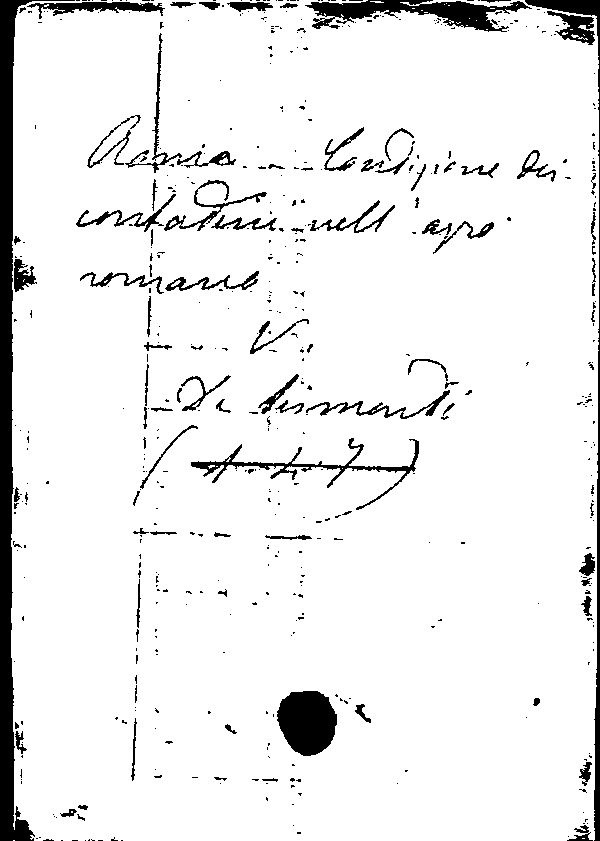 Roma - Condizione dei
contadini nell'agro
romano
V.
De Sismondi
(1.4.7)